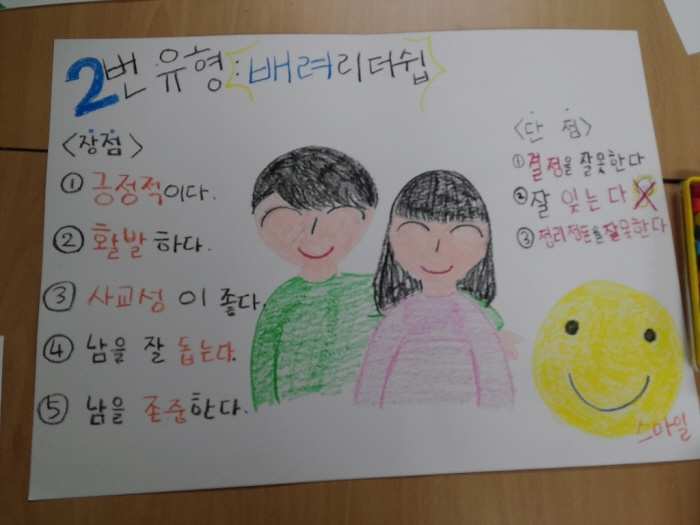 2번 유형 : 배려리더쉽
<장점>
① 긍정적이다.
② 활발하다.
③ 사교성이 좋다.
④ 남을 잘 돕는다.
⑤ 남을 존중한다.
<단 점>
① 결정을 잘못한다
② 잘 잊는다
③ 정리정돈을 잘못한다
스마일